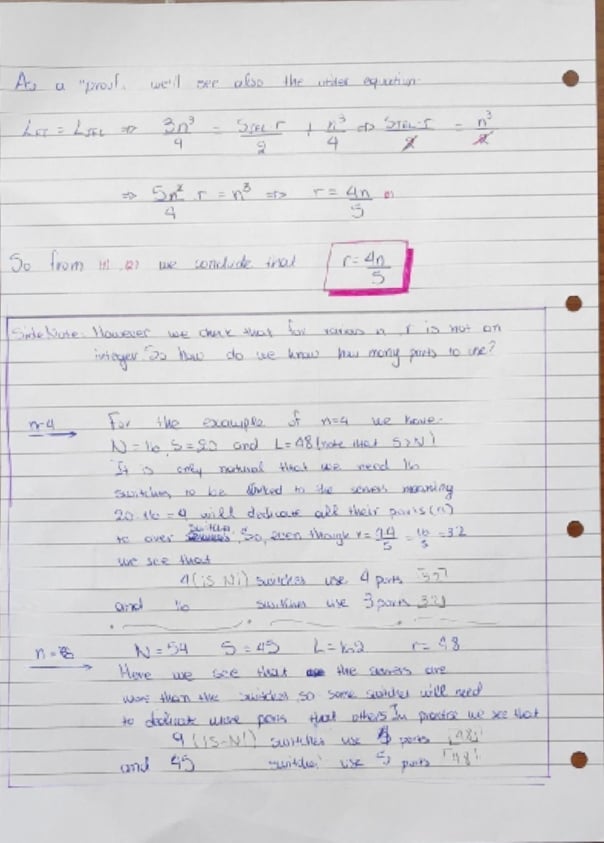 As a "proof" we'll see also the other equation.
L_FT = L_JEL => 3n³/4 = S_JEL·r/2 + n³/4 => S_JEL·r/2 = n³/2
=> 5n²/4 · r = n³ => r = 4n/5
So from (1), (2) we conclude that r = 4n/5
Side Note: However we check that for various n, r is not an
integer. So how do we know how many ports to use?
n=4 For the example of n=4 we have:
N=16, S=20 and L=48 (note that S>N)
It is only natural that we need 16
switches to be linked to the servers meaning
20-16=4 will dedicate all their ports (n)
to other switches. So, even though r = 4·4/5 = 16/5 = 3.2
we see that
4 (|S-N|) switches use 4 ports ⌈3.2⌉
and 16 switches use 3 ports ⌊3.2⌋
n=6 N=54 S=45 L=162 r=4.8
Here we see that the servers are
more than the switches so some switches will need
to dedicate more ports that others. In practise we see that
9 (|S-N|) switches use ports ⌊4.8⌋
and 45 switches use 5 ports ⌈4.8⌉